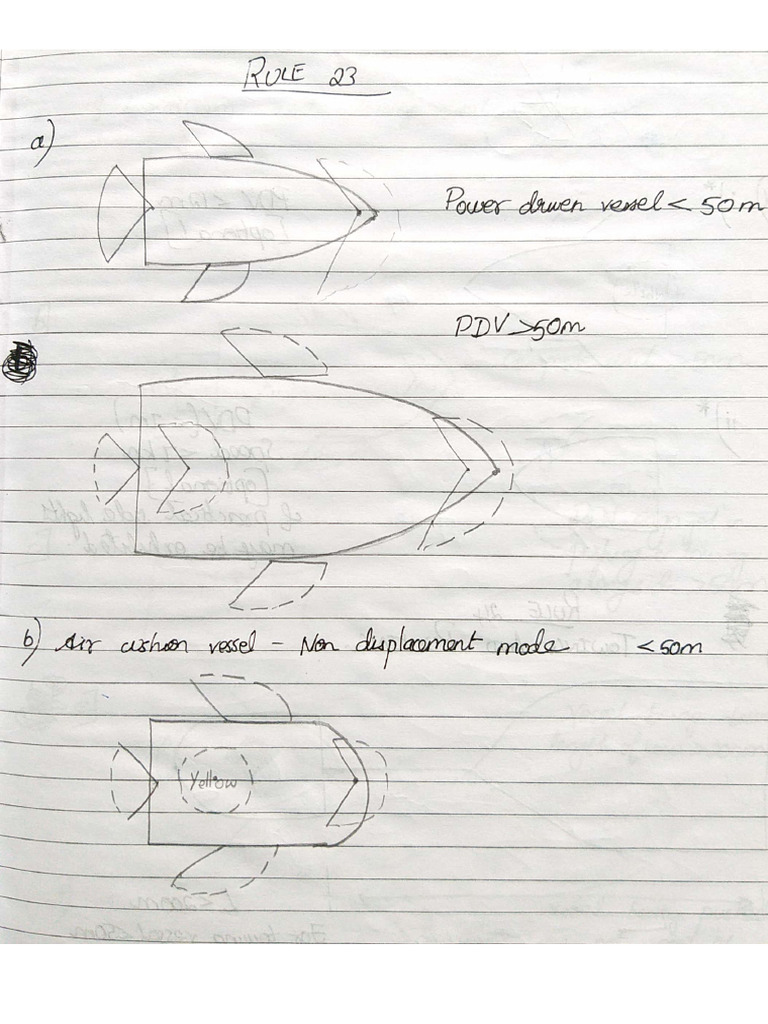 RULE 23
a)
Power driven vessel < 50m
PDV >50m
b) Air cushion vessel - Non displacement mode <50m
Yellow